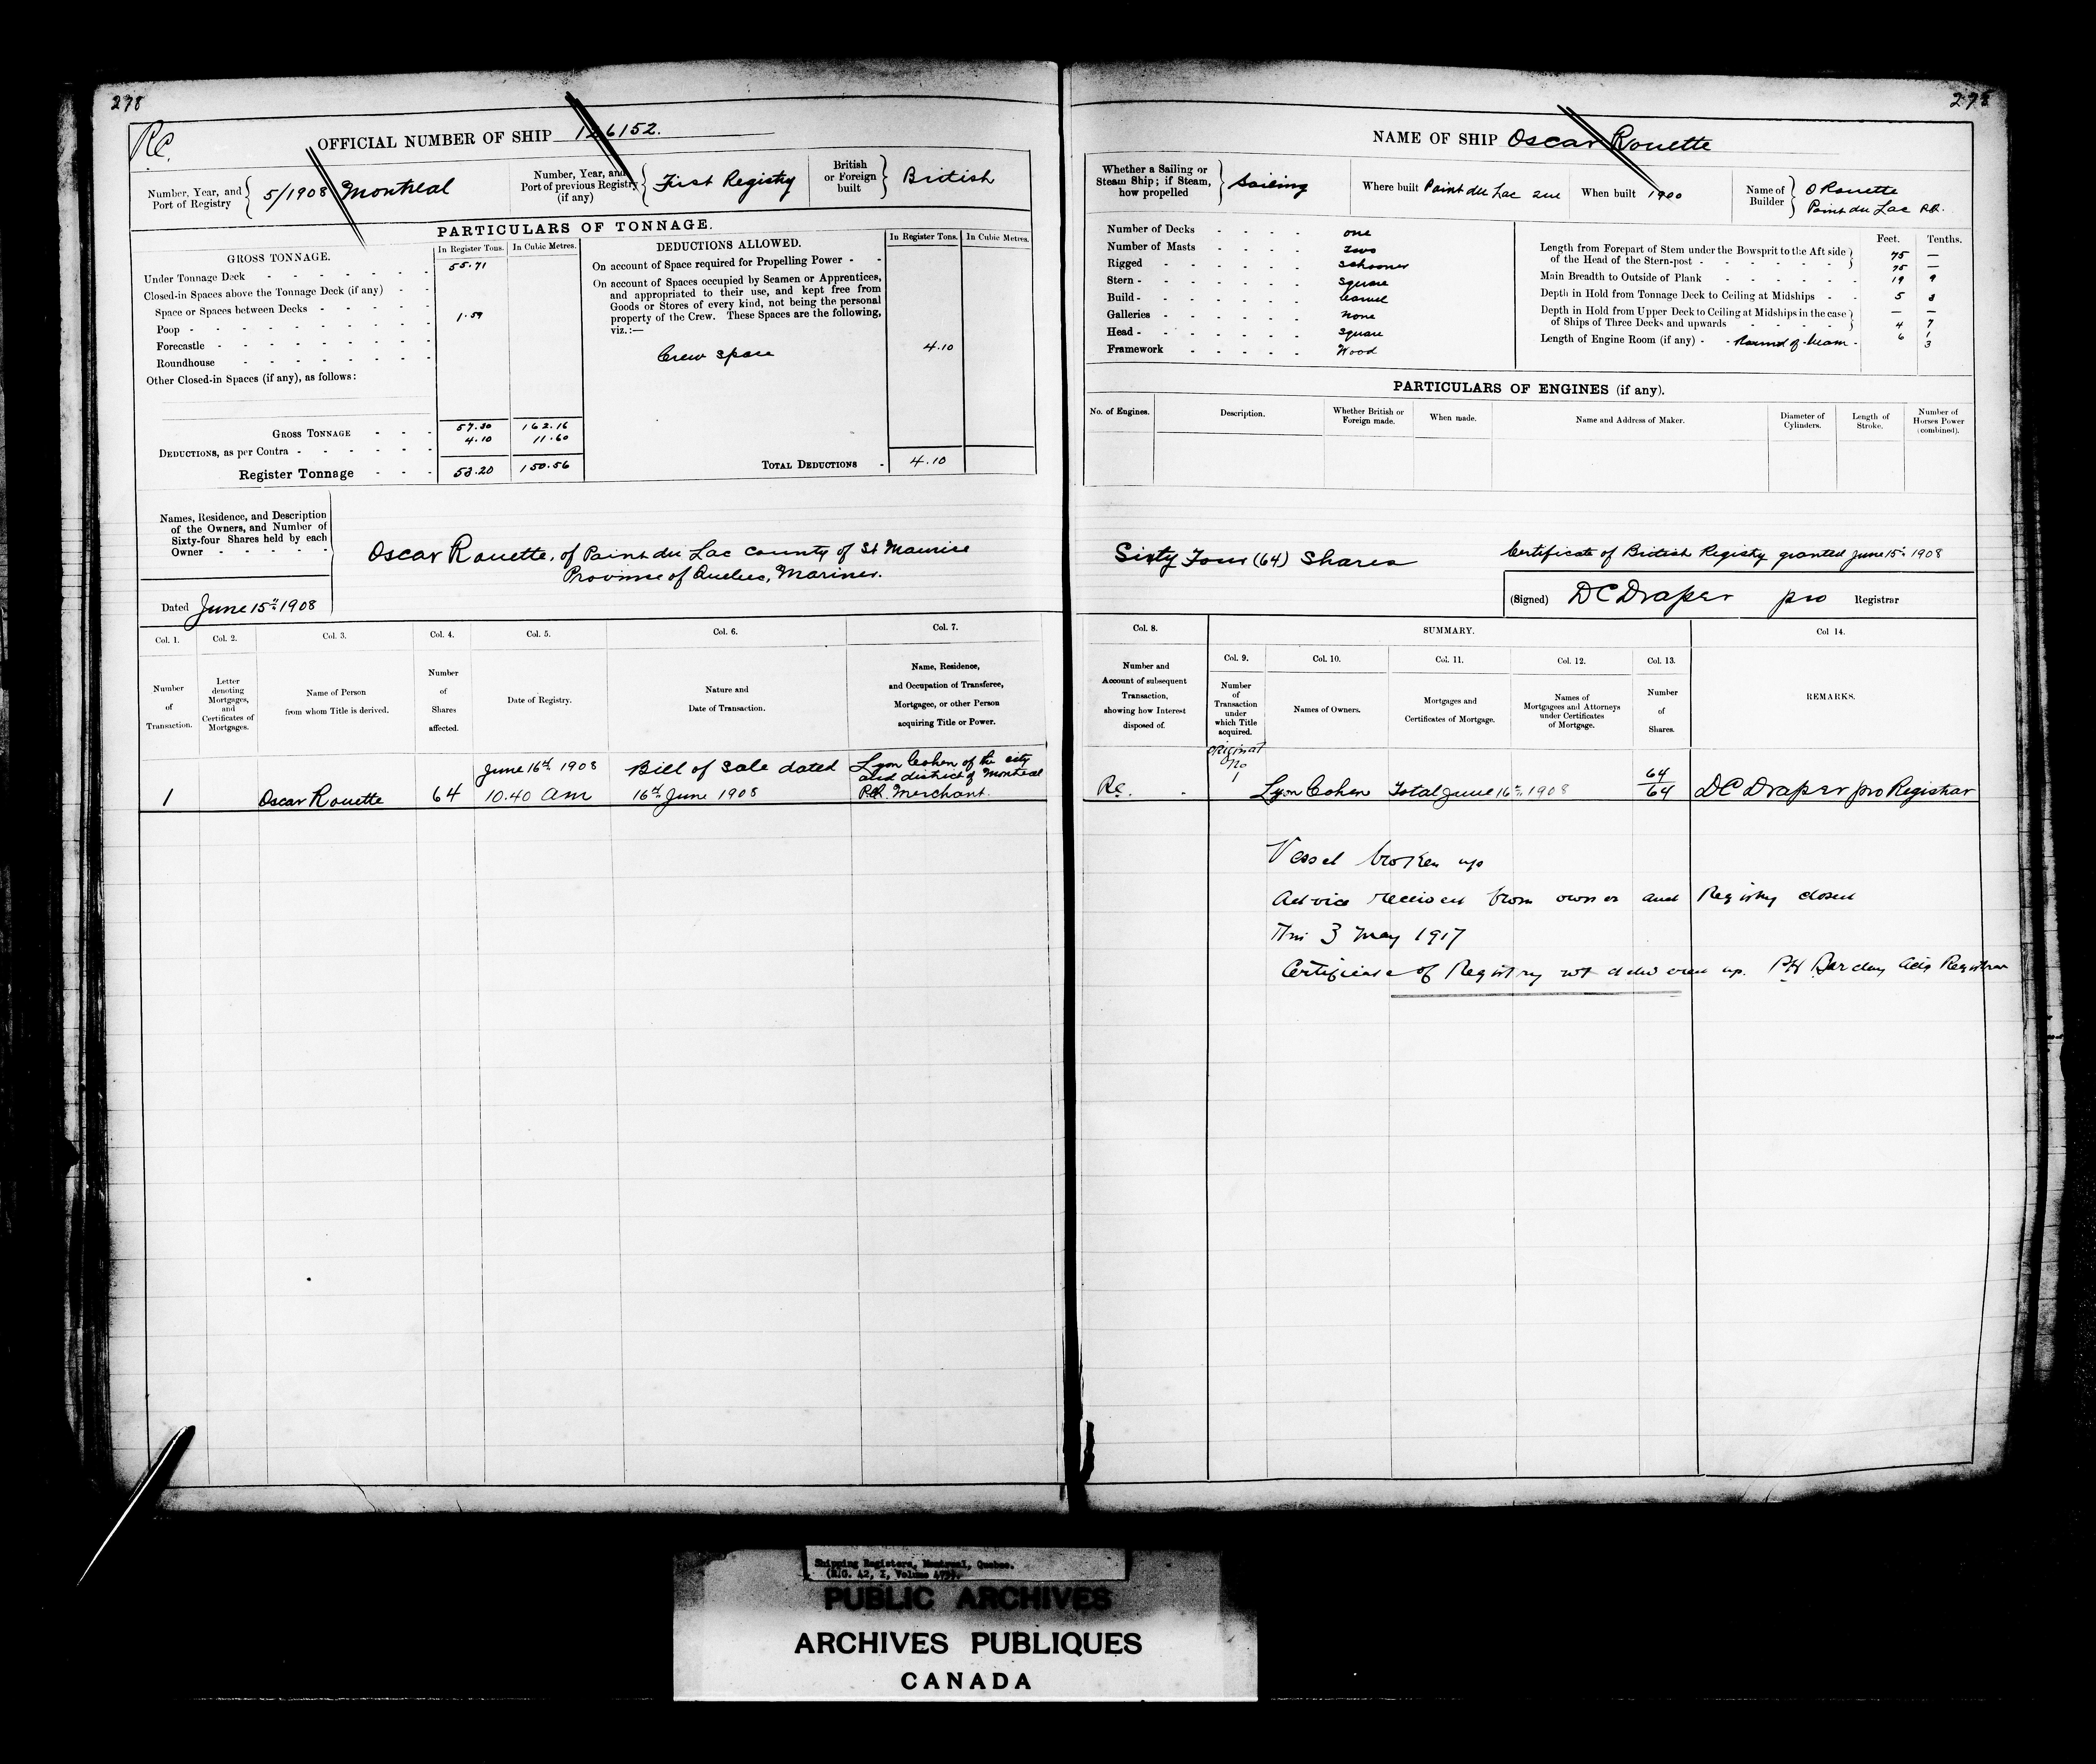 278
RC.
OFFICIAL NUMBER OF SHIP 126152.
Number, Year, and Port of Registry
5/1908 Montreal
Number, Year, and Port of previous Registry (if any)
First Registry
British or Foreign built
British
PARTICULARS OF TONNAGE.
GROSS TONNAGE.
In Register Tons. In Cubic Metres.
Under Tonnage Deck 55.71
Closed-in Spaces above the Tonnage Deck (if any)
Space or Spaces between Decks 1.59
Poop
Forecastle
Roundhouse
Other Closed-in Spaces (if any), as follows:
GROSS TONNAGE 57.30 162.16
DEDUCTIONS, as per Contra 4.10 11.60
Register Tonnage 53.20 150.56
DEDUCTIONS ALLOWED.
In Register Tons. In Cubic Metres.
On account of Space required for Propelling Power
On account of Spaces occupied by Seamen or Apprentices,
and appropriated to their use, and kept free from
Goods or Stores of every kind, not being the personal
property of the Crew. These Spaces are the following,
viz.:—
Crew space 4.10
TOTAL DEDUCTIONS 4.10
Names, Residence, and Description
of the Owners, and Number of
Sixty-four Shares held by each
Owner
Oscar Rouette, of Point du Lac County of St Maurice
Province of Quebec, Mariner.
Dated June 15th 1908
Col. 1. Col. 2. Col. 3. Col. 4. Col. 5. Col. 6. Col. 7.
Number of Transaction.
Letter denoting Mortgages, and Certificates of Mortgages.
Name of Person from whom Title is derived.
Number of Shares affected.
Date of Registry.
Nature and Date of Transaction.
Name, Residence, and Occupation of Transferee, Mortgagee, or other Person acquiring Title or Power.
1 Oscar Rouette 64
June 16th 1908
10.40 am
Bill of Sale dated
16th June 1908
Lyon Cohen of the city
and district of Montreal
P.Q. Merchant.
278
NAME OF SHIP Oscar Rouette
Whether a Sailing or Steam Ship; if Steam, how propelled
Sailing
Where built Point du Lac Que
When built 1900
Name of Builder
O Rouette
Point du Lac P.Q.
Number of Decks one
Number of Masts two
Rigged Schooner
Stern Square
Build Carvel
Galleries None
Head Square
Framework Wood
Feet. Tenths.
Length from Forepart of Stem under the Bowsprit to the Aft side
of the Head of the Stern-post 75 —
75 —
Main Breadth to Outside of Plank 19 9
Depth in Hold from Tonnage Deck to Ceiling at Midships 5 3
Depth in Hold from Upper Deck to Ceiling at Midships in the case — —
of Ships of Three Decks and upwards 4 7
Length of Engine Room (if any) Round of beam 6 1
3
PARTICULARS OF ENGINES (if any).
No. of Engines.
Description.
Whether British or Foreign made.
When made.
Name and Address of Maker.
Diameter of Cylinders.
Length of Stroke.
Number of Horses Power (combined).
Sixty Four (64) Shares
Certificate of British Registry granted June 15th 1908
(Signed) DC Draper pro Registrar
Col. 8. SUMMARY. Col 14.
Col. 9. Col. 10. Col. 11. Col. 12. Col. 13.
Number and Account of subsequent Transaction, showing how Interest disposed of.
Number of Transaction under which Title acquired.
Names of Owners.
Mortgages and Certificates of Mortgage.
Names of Mortgagees and Attorneys under Certificates of Mortgage.
Number of Shares.
REMARKS.
Original
No
Rc. 1 Lyon Cohen Total June 16th 1908 64/64 DC Draper pro Registrar
Vessel broken up
Advice received from owner and Registry closed
This 3 May 1917
Certificate of Registry not delivered up. Barclay Actg Registrar
Shipping Registers, Montreal, Quebec.
PUBLIC ARCHIVES
ARCHIVES PUBLIQUES
CANADA